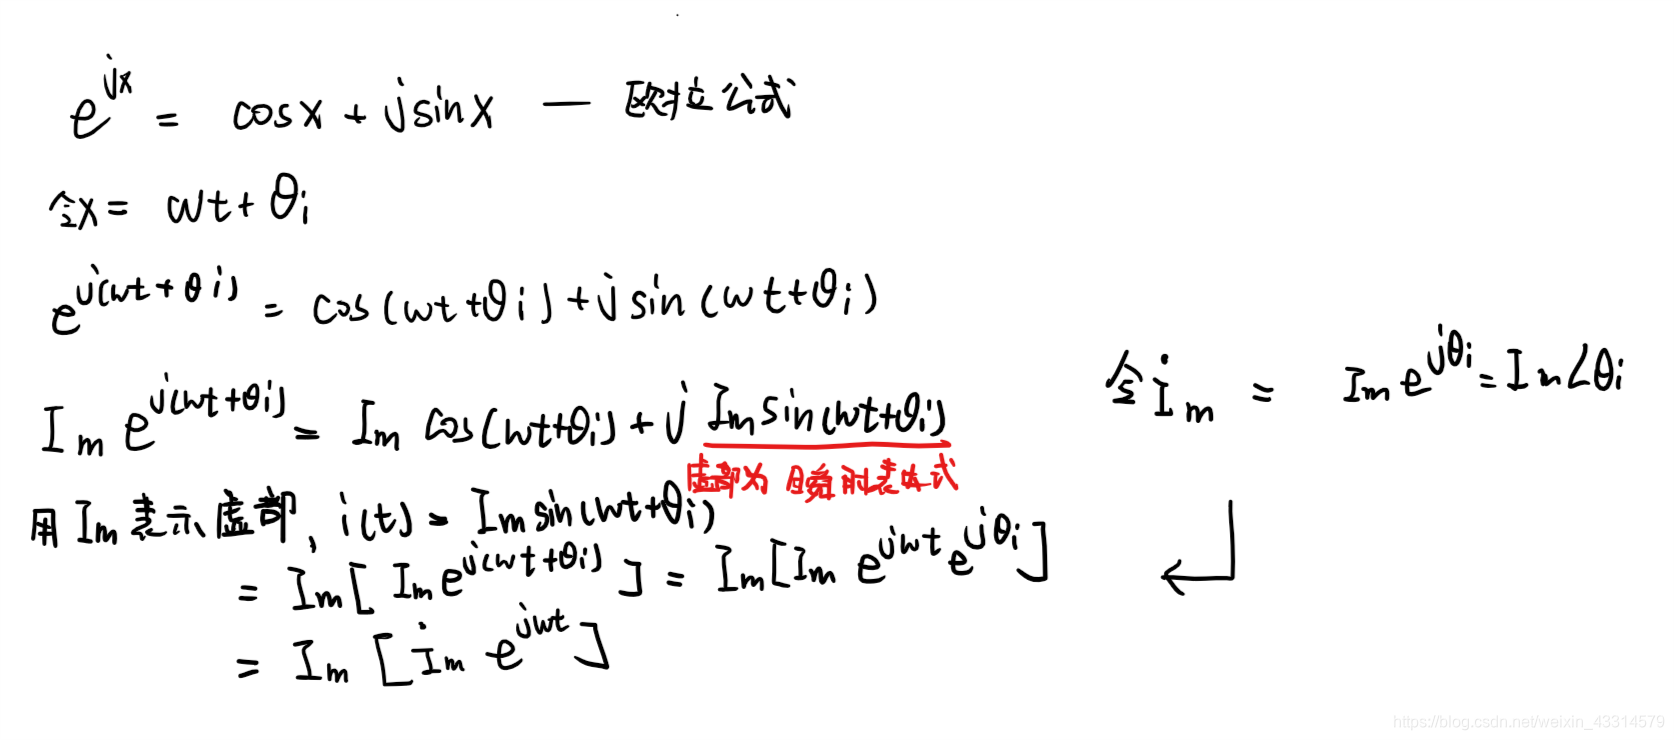 e^{jx} = cosx + jsinx — 欧拉公式
令x = wt + θi
e^{j(wt+θi)} = cos(wt+θi) + jsin(wt+θi)
Im e^{j(wt+θi)} = Im cos(wt+θi) + j Im sin(wt+θi)
虚部为瞬时表达式
令 İm = Im e^{jθi} = Im∠θi
用 Im 表示虚部, i(t) = Im sin(wt+θi)
= Im[Im e^{j(wt+θi)}] = Im[Im e^{jwt} e^{jθi}]
= Im[İm e^{jwt}]
https://blog.csdn.net/weixin_43314579